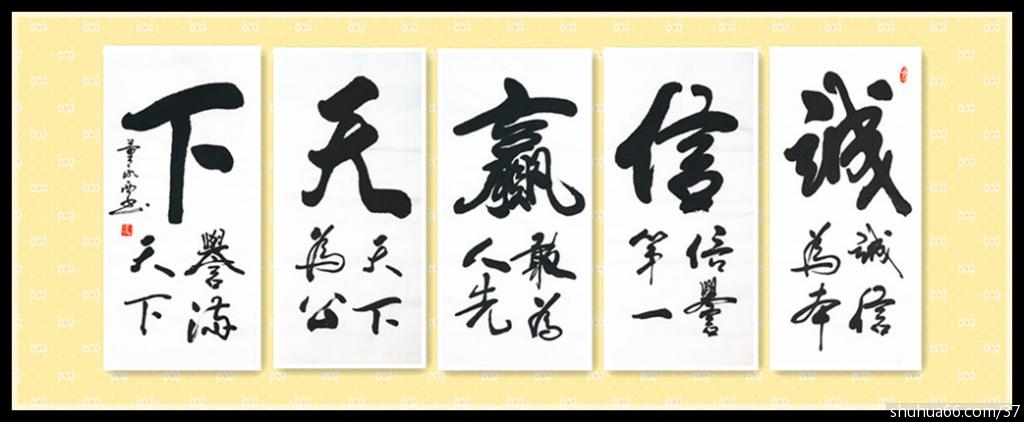 誠
誠信
為本
信
信譽
第一
贏
敢為
人先
天
天下
為公
下
譽滿
天下
shuhua66.com/37